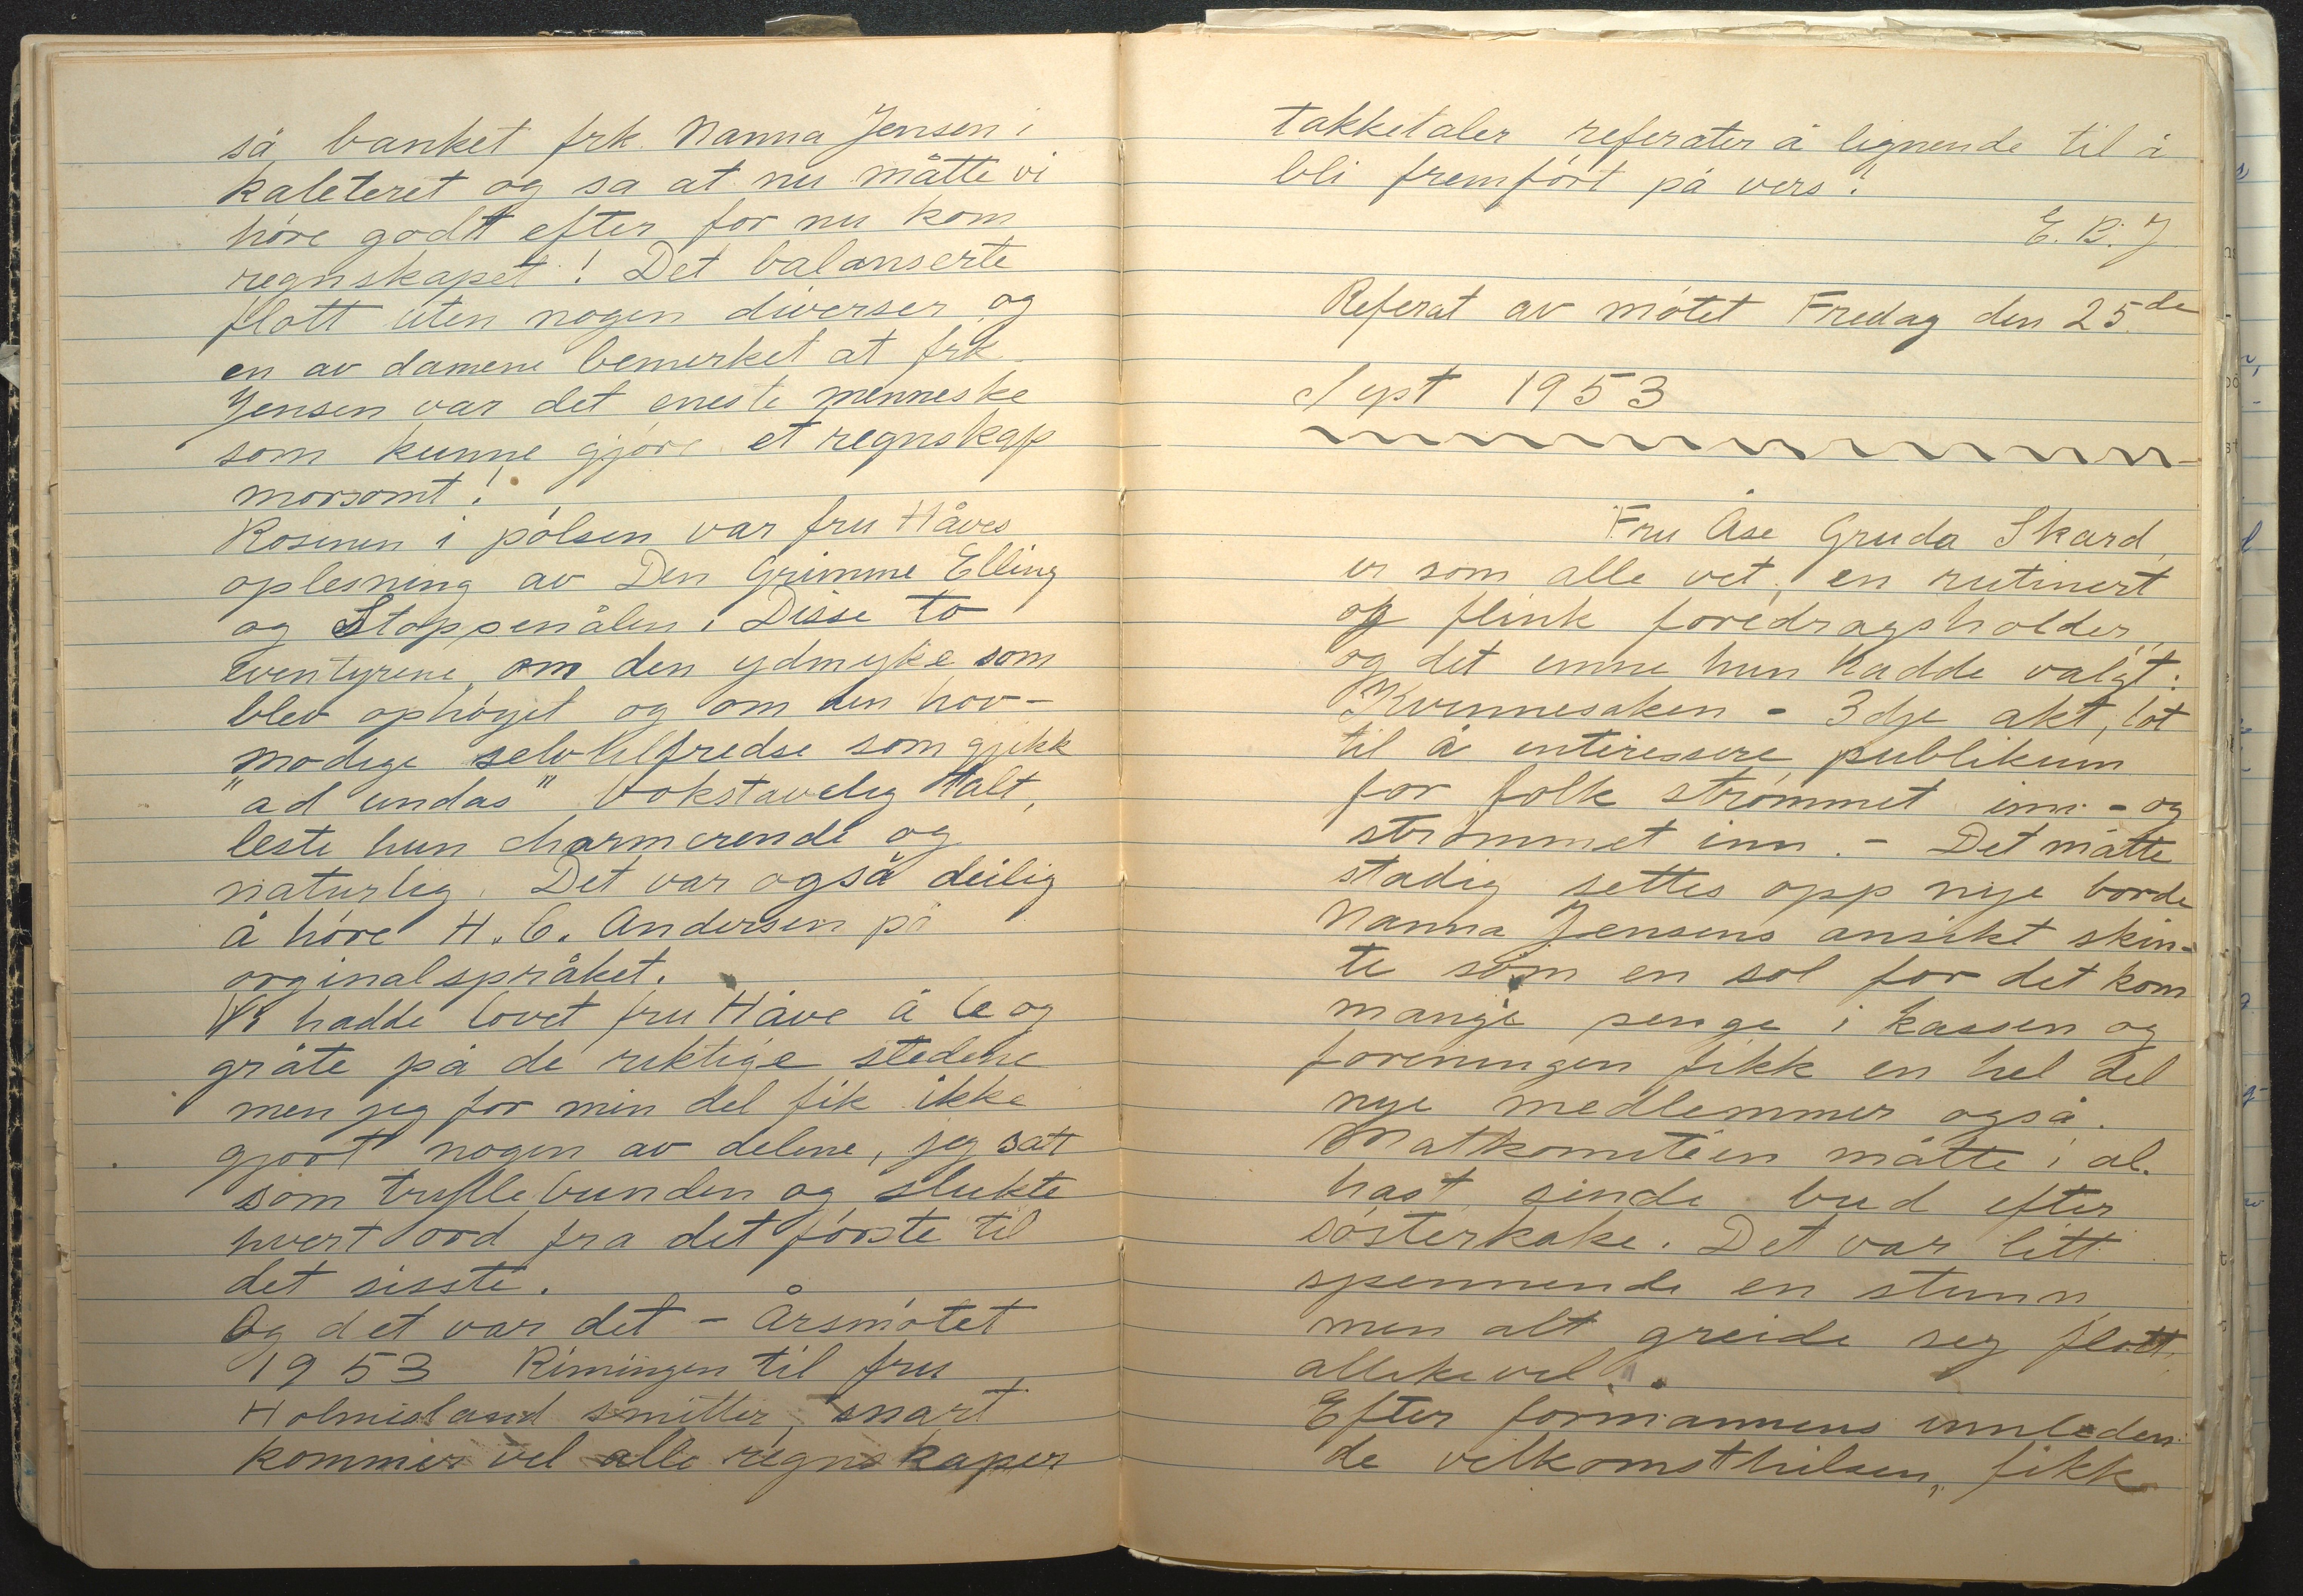 så banket frk. Nanna Jensen i
kateteret og sa at nu måtte vi
høre godt efter for nu kom
regnskapet! Det balanserte
flott uten nogen diverser og
en av damene bemerket at frk.
Jensen var det eneste menneske
som kunne gjøre et regnskap
morsomt!
Rosinen i pølsen var fru Håves
oplesning av Den Grimme Elling
og Stoppenålen. Disse to
eventyrene, om den ydmyke som
blev ophøyet og om den hov-
modige selvtilfredse som gikk
"ad undas" bokstavelig talt,
leste hun charmerende og
naturlig. Det var også deilig
å høre H. C. Andersen på
orginalspråket.
Vi hadde lovet fru Håve å le og
gråte på de riktige stedene
men jeg for min del fik ikke
gjort nogen av delene, jeg satt
som tryllebunden og slukte
hvert ord fra det første til
det sisste.
Og det var det - Årsmøtet
1953 Rimingen til fru
Holmesland smitter, snart
kommer vel alle regnskaper
takketaler referater å lignende til å
bli fremført på vers!
E. B. J
Referat av møtet Fredag den 25de
Sept 1953
Fru Åse Gruda Skard,
er som alle vet, en rutinert
og flink foredragsholder,
og det emne hun hadde valgt:
Kvinnesaken - 3dje akt, lot
til å interessere publikum
for folk strømmet inn - og
strømmet inn. - Det måtte
stadig settes opp nye borde
Nanna Jensens ansikt skin-
te som en sol for det kom
mange penge i kassen og
foreningen fikk en hel del
nye medlemmer også.
Matkomiteen måtte i al.
hast sende bud efter
søsterkake. Det var litt
spennende en stunn,
men alt greide seg flott
allikevel.
Efter formannens innleden-
de velkomsthilsen, fikk